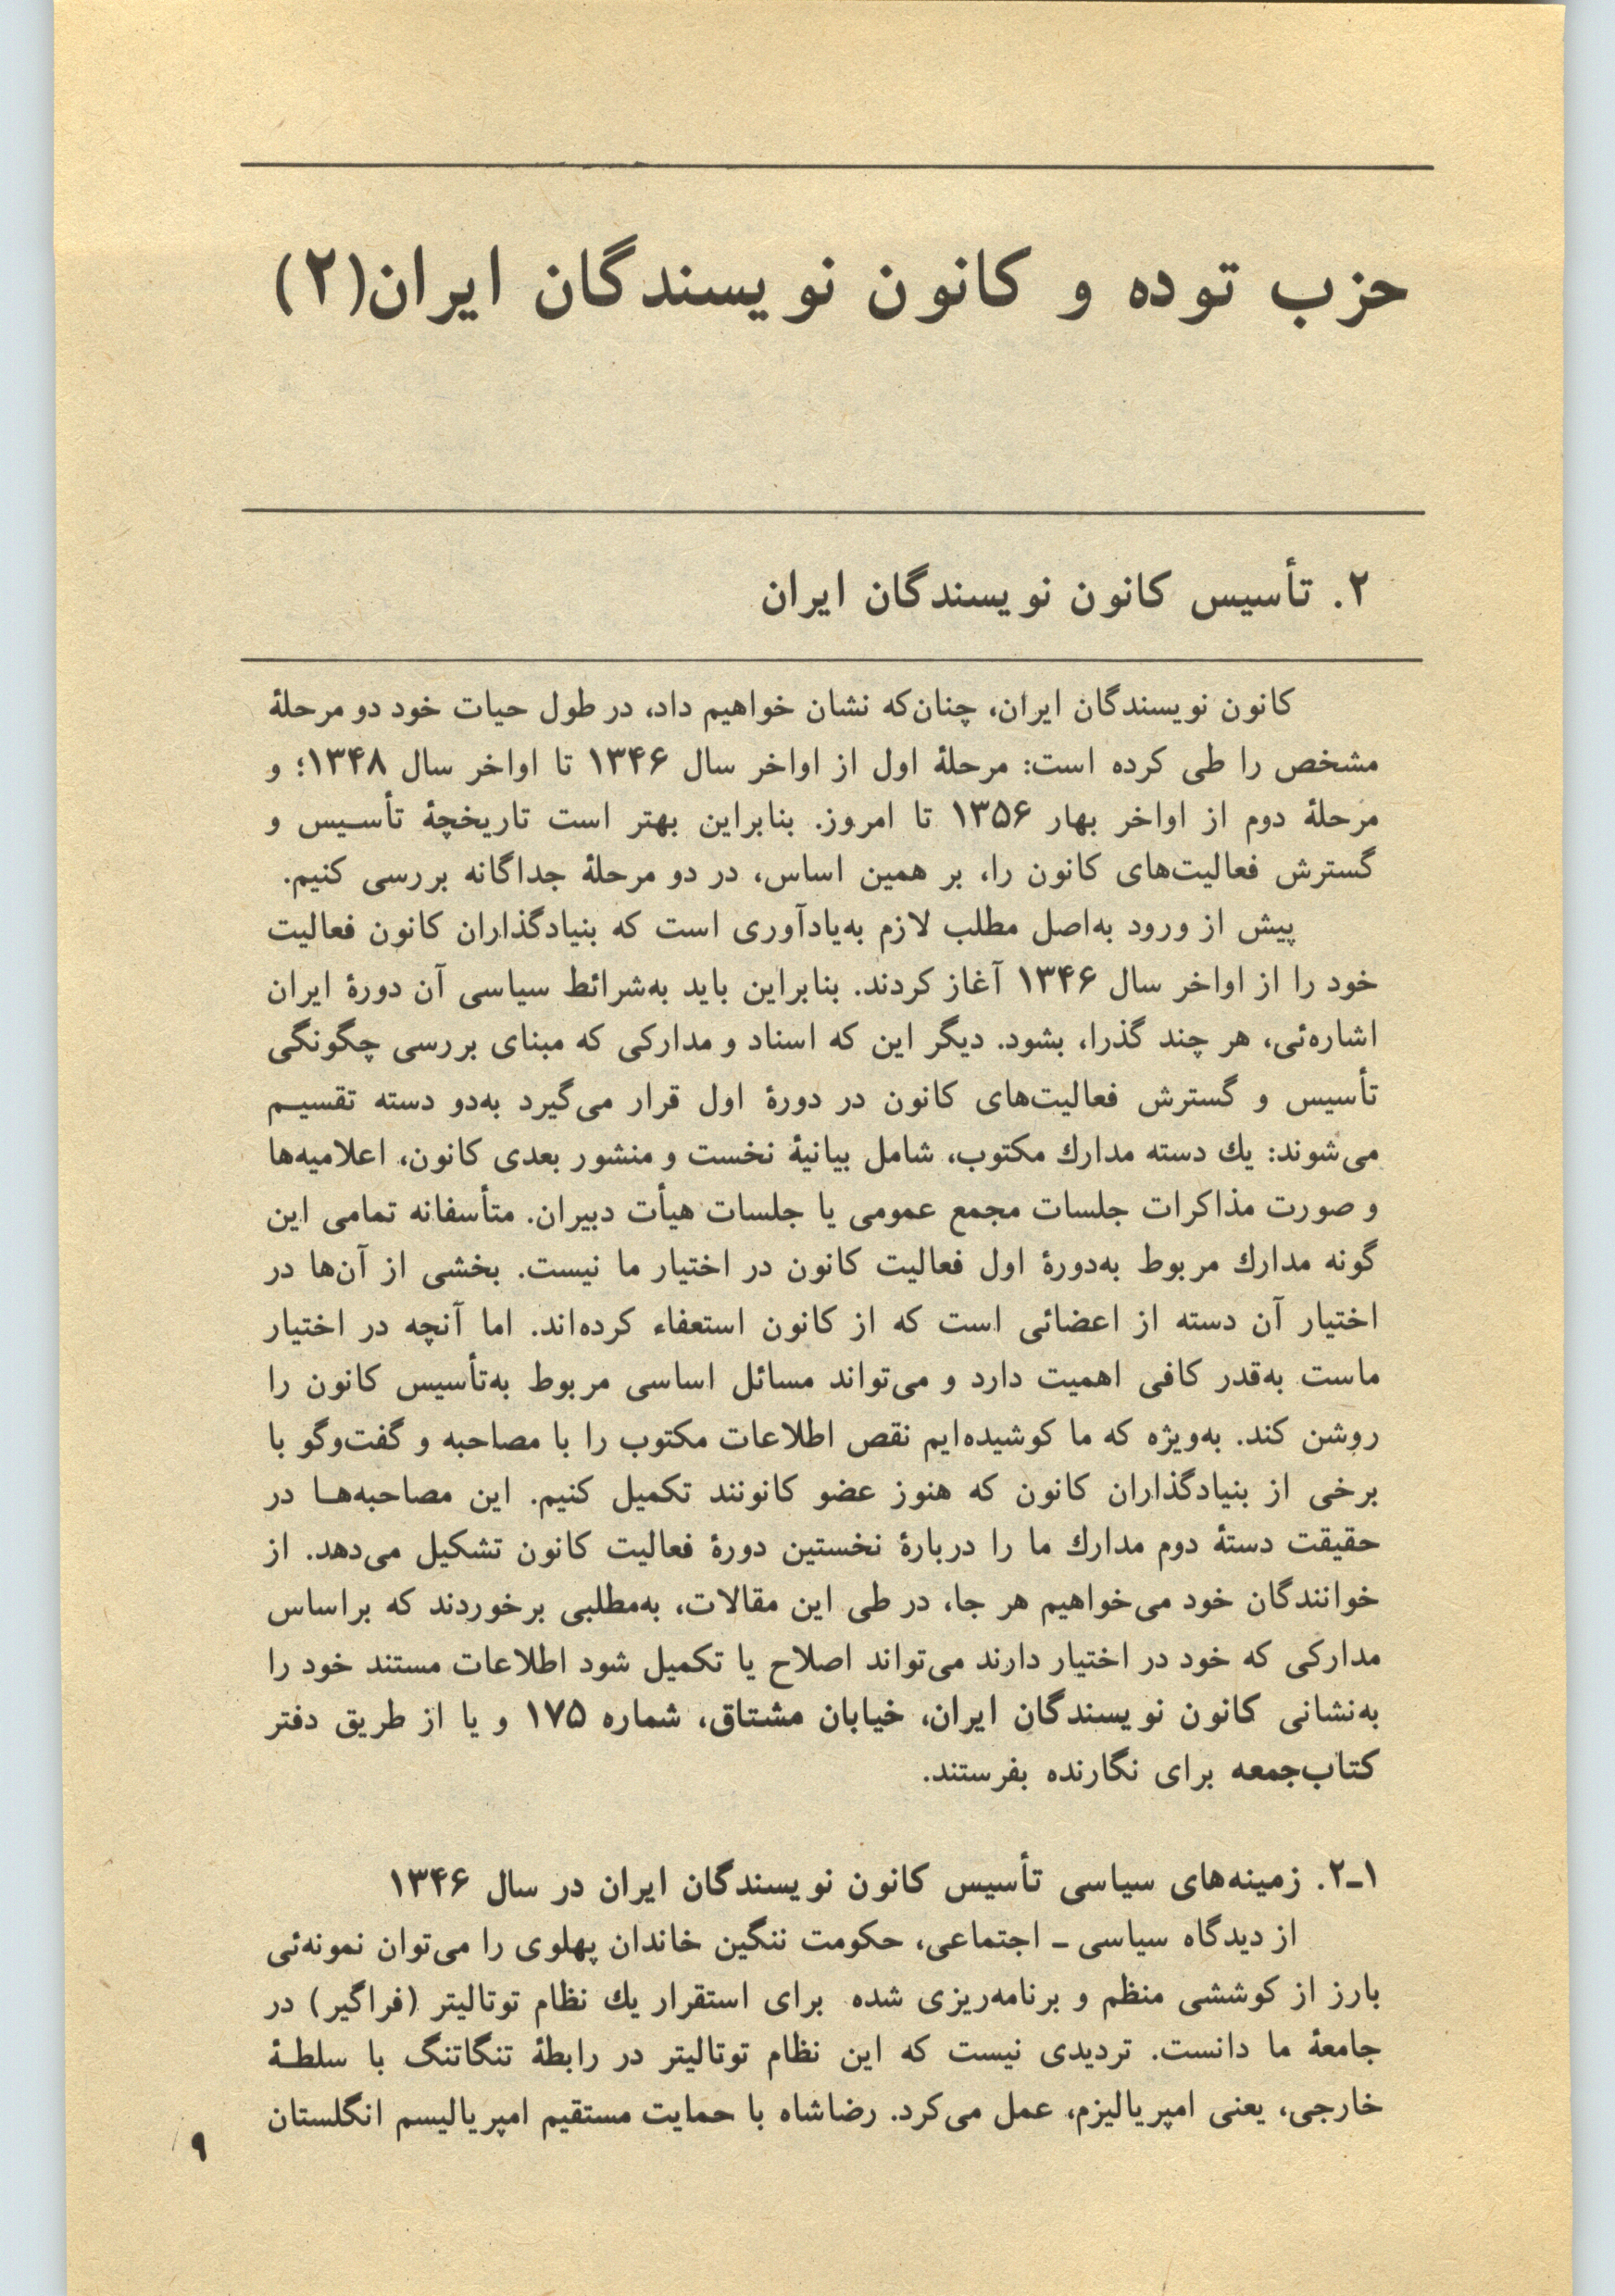 حزب توده و کانون نویسندگان ایران(۲)
۲. تأسیس کانون نویسندگان ایران
کانون نویسندگان ایران، چنان‌که نشان خواهیم داد، در طول حیات خود دو مرحلهٔ
مشخص را طی کرده است: مرحلهٔ اول از اواخر سال ۱۳۴۶ تا اواخر سال ۱۳۴۸؛ و
مرحلهٔ دوم از اواخر بهار ۱۳۵۶ تا امروز. بنابراین بهتر است تاریخچهٔ تأسـیس و
گسترش فعالیت‌های کانون را، بر همین اساس، در دو مرحلهٔ جداگانه بررسی کنیم.
پیش از ورود به‌اصل مطلب لازم به‌یادآوری است که بنیادگذاران کانون فعالیت
خود را از اواخر سال ۱۳۴۶ آغاز کردند. بنابراین باید به‌شرائط سیاسی آن دورهٔ ایران
اشاره‌ئی، هر چند گذرا، بشود. دیگر این که اسناد و مدارکی که مبنای بررسی چگونگی
تأسیس و گسترش فعالیت‌های کانون در دورهٔ اول قرار می‌گیرد به‌دو دسته تقسیـم
می‌شوند: یك دسته مدارك مکتوب، شامل بیانیهٔ نخست و منشور بعدی کانون، اعلامیه‌ها
و صورت مذاکرات جلسات مجمع عمومی یا جلسات هیأت دبیران. متأسفانه تمامی این
گونه مدارك مربوط به‌دورهٔ اول فعالیت کانون در اختیار ما نیست. بخشی از آن‌ها در
اختیار آن دسته از اعضائی است که از کانون استعفاء کرده‌اند. اما آنچه در اختیار
ماست به‌قدر کافی اهمیت دارد و می‌تواند مسائل اساسی مربوط به‌تأسیس کانون را
روشن کند. به‌ویژه که ما کوشیده‌ایم نقص اطلاعات مکتوب را با مصاحبه و گفت‌وگو با
برخی از بنیادگذاران کانون که هنوز عضو کانونند تکمیل کنیم. این مصاحبه‌هـا در
حقیقت دستهٔ دوم مدارك ما را دربارهٔ نخستین دورهٔ فعالیت کانون تشکیل می‌دهد. از
خوانندگان خود می‌خواهیم هر جا، در طی این مقالات، به‌مطلبی برخوردند که براساس
مدارکی که خود در اختیار دارند می‌تواند اصلاح یا تکمیل شود اطلاعات مستند خود را
به‌نشانی کانون نویسندگان ایران، خیابان مشتاق، شماره ۱۷۵ و یا از طریق دفتر
کتاب‌جمعه برای نگارنده بفرستند.
۱ـ۲. زمینه‌های سیاسی تأسیس کانون نویسندگان ایران در سال ۱۳۴۶
از دیدگاه سیاسی ـ اجتماعی، حکومت ننگین خاندان پهلوی را می‌توان نمونه‌ئی
بارز از کوششی منظم و برنامه‌ریزی شده برای استقرار یك نظام توتالیتر (فراگیر) در
جامعهٔ ما دانست. تردیدی نیست که این نظام توتالیتر در رابطهٔ تنگاتنگ با سلطـهٔ
خارجی، یعنی امپریالیزم، عمل می‌کرد. رضاشاه با حمایت مستقیم امپریالیسم انگلستان
۹